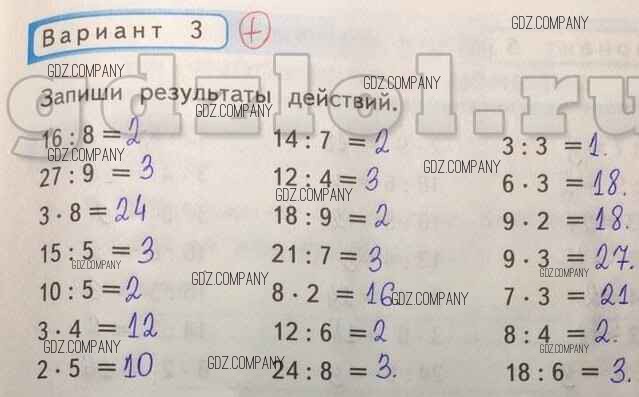 Вариант 3 +
GDZ.COMPANY
GDZ.COMPANY
gdzlol.ru
GDZ.COMPANY
Запиши результаты действий.
GDZ.COMPANY
16 : 8 = 2
14 : 7 = 2
3 : 3 = 1.
GDZ.COMPANY
GDZ.COMPANY
27 : 9 = 3
12 : 4 = 3
6 · 3 = 18.
GDZ.COMPANY
3 · 8 = 24
18 : 9 = 2
9 · 2 = 18.
15 : 5 = 3
21 : 7 = 3
9 · 3 = 27.
GDZ.COMPANY
GDZ.COMPANY
GDZ.COMPANY
10 : 5 = 2
8 · 2 = 16
7 · 3 = 21
GDZ.COMPANY
3 · 4 = 12
12 : 6 = 2
8 : 4 = 2.
GDZ.COMPANY
GDZ.COMPANY
GDZ.COMPANY
2 · 5 = 10
24 : 8 = 3.
18 : 6 = 3.